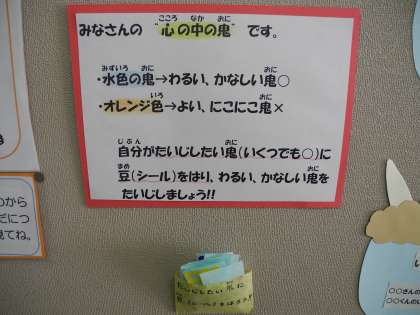 みなさんの "心の中の鬼" です。
・水色の鬼→わるい、かなしい鬼○
・オレンジ色→よい、にこにこ鬼×
自分がたいじしたい鬼(いくつでも○)に
豆(シール)をはり、わるい、かなしい鬼を
たいじしましょう!!
たいじしたい鬼に
のから
だにつ
見てね。
○○さんの
○○くんのい